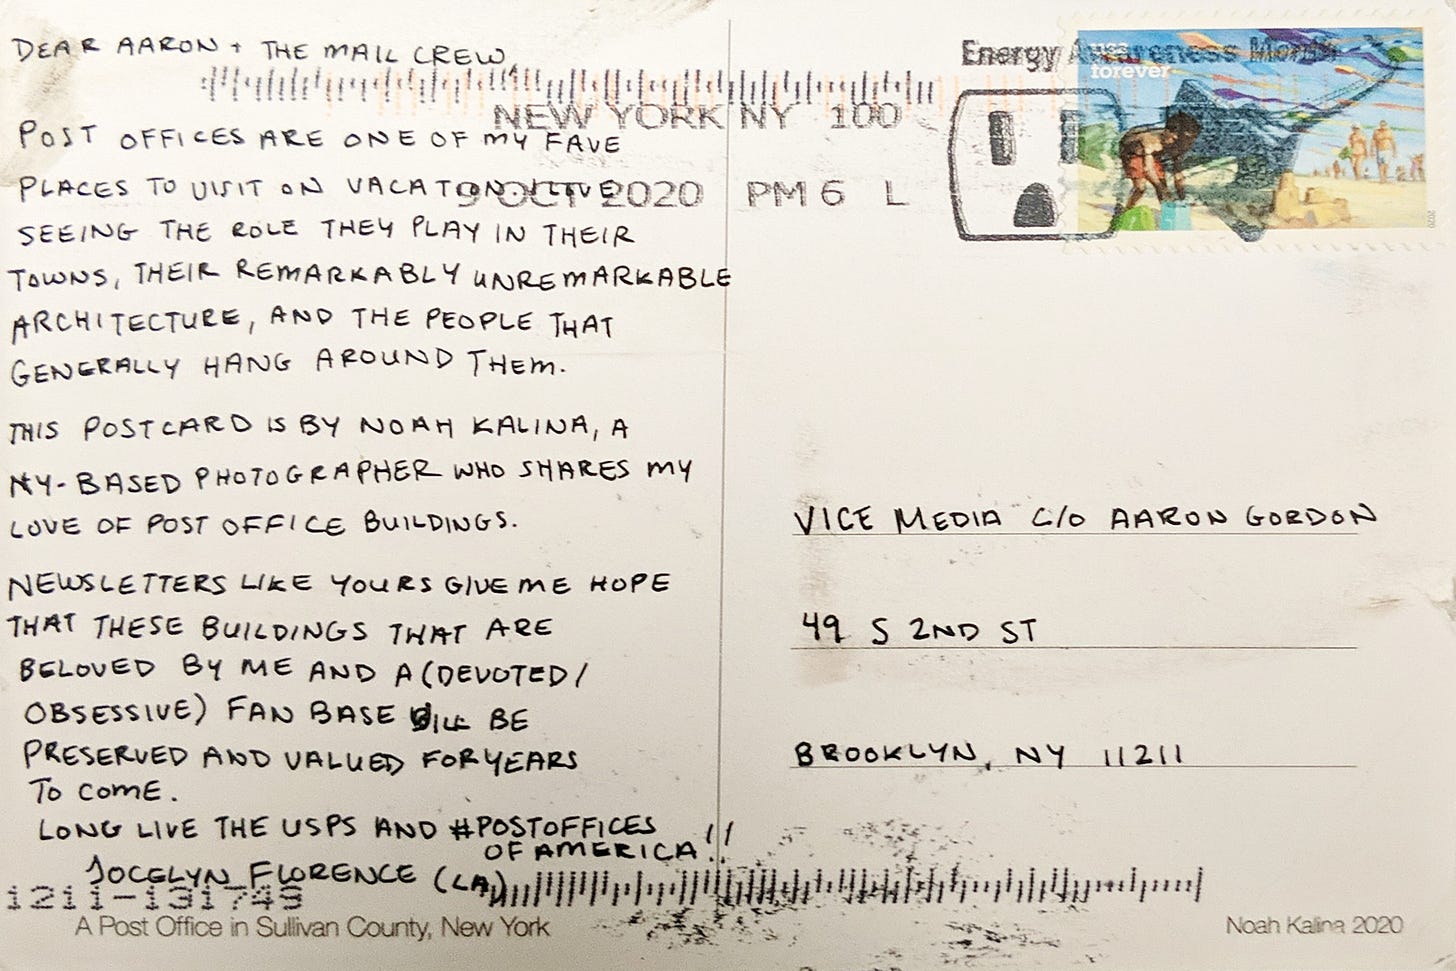 DEAR AARON + THE MAIL CREW,
POST OFFICES ARE ONE OF MY FAVE
PLACES TO VISIT ON VACATION. I LOVE
SEEING THE ROLE THEY PLAY IN THEIR
TOWNS, THEIR REMARKABLY UNREMARKABLE
ARCHITECTURE, AND THE PEOPLE THAT
GENERALLY HANG AROUND THEM.
THIS POSTCARD IS BY NOAH KALINA, A
NY-BASED PHOTOGRAPHER WHO SHARES MY
LOVE OF POST OFFICE BUILDINGS.
NEWSLETTERS LIKE YOURS GIVE ME HOPE
THAT THESE BUILDINGS THAT ARE
BELOVED BY ME AND A (DEVOTED/
OBSESSIVE) FAN BASE WILL BE
PRESERVED AND VALUED FOR YEARS
TO COME.
LONG LIVE THE USPS AND #POSTOFFICES
OF AMERICA!!
JOCELYN FLORENCE (LA)
1211-131749
A Post Office in Sullivan County, New York
Energy Awareness Month
forever
NEW YORK NY 100
9 OCT 2020 PM 6 L
2020
VICE MEDIA C/O AARON GORDON
49 S 2ND ST
BROOKLYN, NY 11211
Noah Kalina 2020